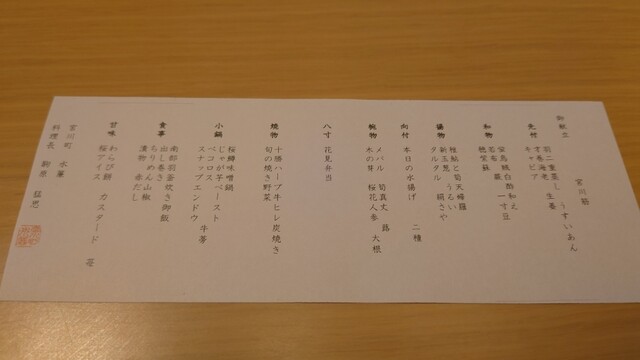 御献立
宮川筋
先付
羽二重蒸し うすいあん
才巻海老 生姜
キャビア
和物
蛍烏賊白酢和え
若布 蕨 一寸豆
穂紫蘇
揚物
稚鮎と筍天婦羅
新玉葱 うるい 絹さや
タルタル
向付
本日の水揚げ 二種
椀物
メバル 筍真丈 蕗
木の芽 桜花人参 大根
八寸
花見弁当
焼物
十勝ハーブ牛ヒレ炭焼き
旬の焼き野菜
小鍋
桜鱒味噌鍋
じゃが芋ペースト 牛蒡
ペコロス
スナップエンドウ
食事
南部羽釜炊き御飯
出し巻き
ちりめん山椒
漬物 赤だし
甘味
わらび餅 カスタード 苺
桜アイス
宮川町 水簾
料理長